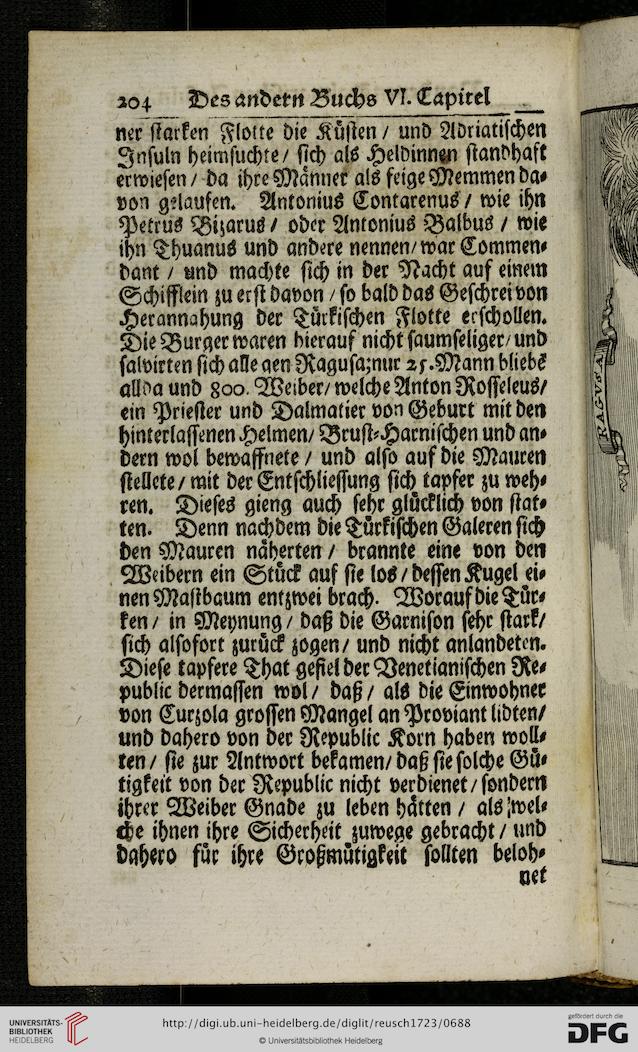 204 Des andern Buchs VI. Capitel
ner starken Flotte die Küsten / und Adriatischen
Insuln heimsuchte / sich als Heldinnen standhaft
erwiesen / da ihre Männer als feige Memmen da⸗
von gelaufen. Antonius Contarenus / wie ihn
Petrus Bizarus / oder Antonius Balbus / wie
ihn Thuanus und andere nennen / war Commen⸗
dant / und machte sich in der Nacht auf einem
Schifflein zu erst davon / so bald das Geschrei von
Herannahung der Türkischen Flotte erschollen.
Die Burger waren hierauf nicht saumseliger / und
salvirten sich alle gen Ragusa; nur 25. Mann bliebē
allda und 800. Weiber / welche Anton Rosseleus /
ein Priester und Dalmatier von Geburt mit den
hinterlassenen Helmen / Brust⸗Harnischen und an⸗
dern wol bewaffnete / und also auf die Mauren
stellete / mit der Entschliessung sich tapfer zu weh⸗
ren. Dieses gieng auch sehr glücklich von stat⸗
ten. Denn nachdem die Türkischen Galeren sich
den Mauren näherten / brannte eine von den
Weibern ein Stück auf sie los / dessen Kugel ei⸗
nen Mastbaum entzwei brach. Worauf die Tür⸗
ken / in Meynung / daß die Garnison sehr stark /
sich alsofort zurück zogen / und nicht anlandeten.
Diese tapfere That gefiel der Venetianischen Re⸗
public dermassen wol / daß / als die Einwohner
von Curzola grossen Mangel an Proviant lidten /
und dahero von der Republic Korn haben woll⸗
ten / sie zur Antwort bekamen / daß sie solche Gü⸗
tigkeit von der Republic nicht verdienet / sondern
ihrer Weiber Gnade zu leben hätten / als wel⸗
che ihnen ihre Sicherheit zuwege gebracht / und
dahero für ihre Großmütigkeit sollten beloh⸗
net
RAGVSA
UNIVERSITÄTS-
BIBLIOTHEK
HEIDELBERG
http://digi.ub.uni-heidelberg.de/diglit/reusch1723/0688
© Universitätsbibliothek Heidelberg
gefördert durch die
DFG